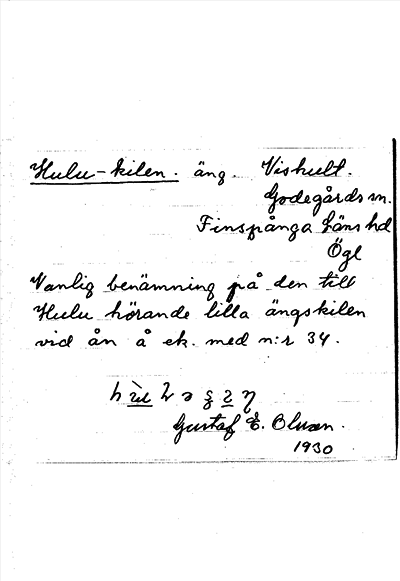 Hulu-kilen. äng. Vishult.
Godegårds sn.
Finspånga läns hd
Ögl
Vanlig benämning på den till
Hulu hörande lilla ängskilen
vid ån å ek. med n:r 34.
Gustaf E.
1930